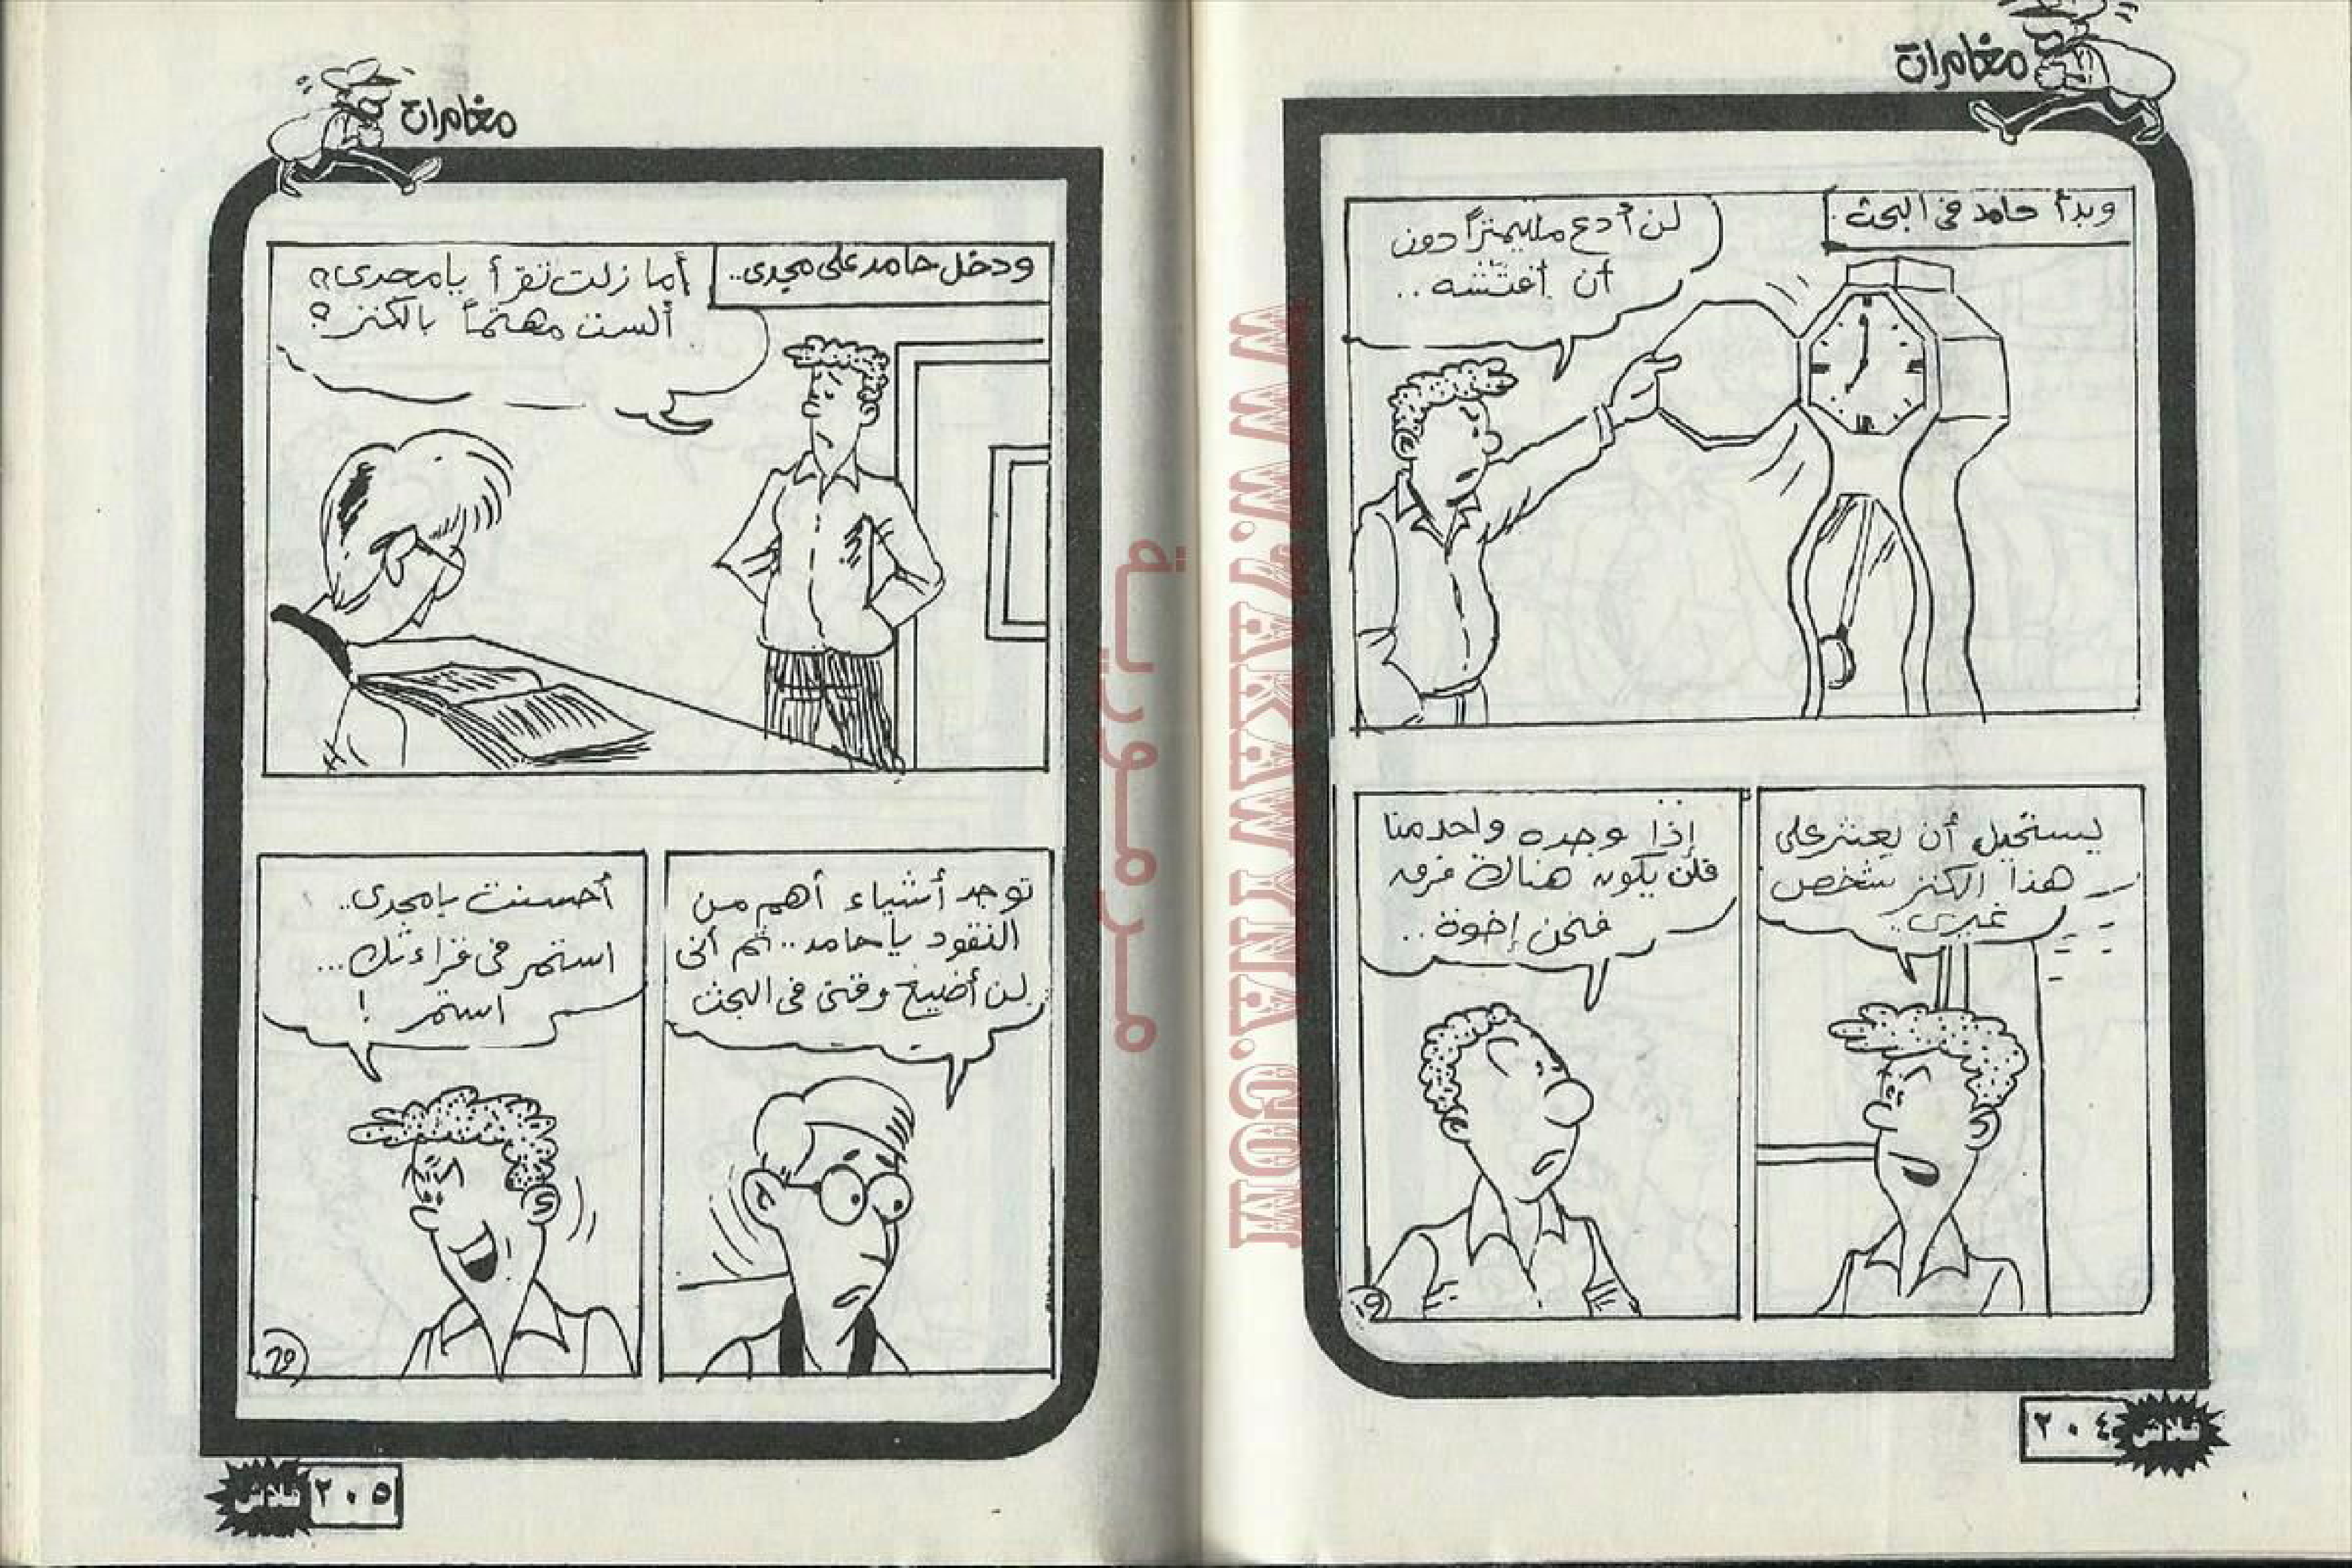 مغامرات
وبدأ حامد فى البحث.
لن أدع ملليمتراً دون
أن أفتشه..
يستحيل أن يعثر على
هذا الكنز شخص
غيرى..
إذا وجده واحد منا
فلن يكون هناك فرق
فنحن إخوة..
فلاش
٢٠٤
مغامرات
ودخل حامد على مجدى..
أما زلت تقرأ يا مجدى؟
ألست مهتماً بالكنز؟
توجد أشياء أهم من
النقود يا حامد.. ثم أنى
لن أضيع وقتى فى البحث
أحسنت يا مجدى..
استمر فى قراءتك...
استمر !
٢٠٥
فلاش
مرمورية
WWW.VAKAWKNA.COM